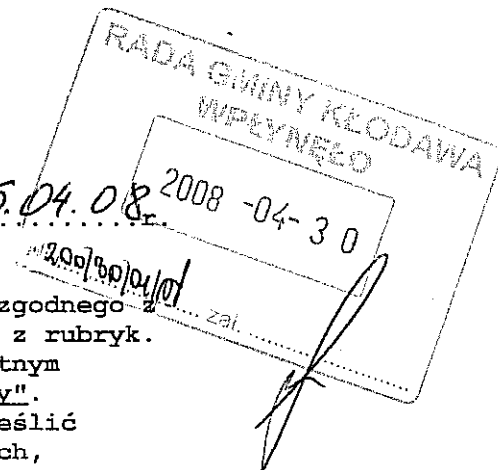 RADA GMINY KŁODAWA
WPŁYNĘŁO
2008 -04- 3 0
5.04.08r.
zał.
zgodnego z
z rubryk.
tnym
y".
eślić
ch,